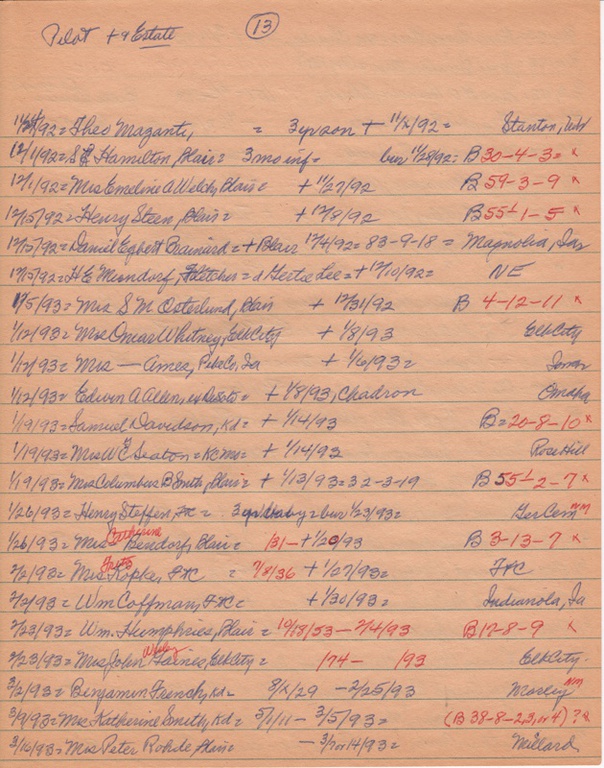 Pilot + a Estate (13)
11/24/92 = Theo Maganti, = 3 yr son + 11/x/92 = Stanton, Neb
12/1/92 = S E Hamilton, Blair = 3 mo inf = bur 11/28/92 = B 30-4-3 = x
12/1/92 = Mrs Emeline A Welch, Blair = + 11/27/92 B 59-3-9 x
12/15/92 = Henry Steen, Blair = + 12/8/92 B 55½ 1-5 x
12/15/92 = Daniel Egbert Brainard = + Blair 12/4/92 = 83-9-18 = Magnolia, Ia
12/15/92 = H E Mundorf, Fletcher = d Gertie Lee = + 12/10/92 = NE
1/5/93 = Mrs S M Osterlund, Blair + 12/31/92 B 4-12-11 x
1/12/93 = Mrs Omar Whitney, Elk City + 1/8/93 Elk City
1/12/93 = Mrs — Ames, Ia + 1/6/93 = Iowa
1/12/93 = Edwin A Allen, ex Desoto = + 1/8/93, Chadron Omaha
1/19/93 = Samuel Davidson, Kd = + 1/14/93 B = 20-8-10 x
1/19/93 = Mrs W E Seaton = KC Mo = + 1/14/93 Rose Hill
1/19/93 = Mrs Columbus B Smith, Blair = + 1/13/93 = 32-3-19 B 55½-2-7 x
1/26/93 = Henry Steffen, FC = 3 yr baby = bur 1/23/93 = Ger Cem nm
1/26/93 = Mrs Catherine Bendorf, Blair = /31 - + 1/20/93 B 3-13-7 x
2/2/93 = Mrs Kopke, FtC = 7/8/36 + 1/27/93 = FtC
2/2/93 = Wm Coffman, FtC = + 1/30/93 = Indianola, Ia
2/23/93 = Wm. Humphries, Blair = 10/18/53 - 2/4/93 B 17-8-9 x
2/23/93 = Mrs John Gaines, Elk City = /74 - /93 Elk City.
3/2/93 = Benjamin French, Kd = 8/x/29 - 2/25/93 Morley nm
3/9/93 = Mrs Katherine Smith, Kd = 5/1/11 - 3/5/93 = (B 38-8-2,3, or 4) ? x
3/16/93 = Mrs Peter Rohde, Blair = - 3/7 or 14/93 = Millard